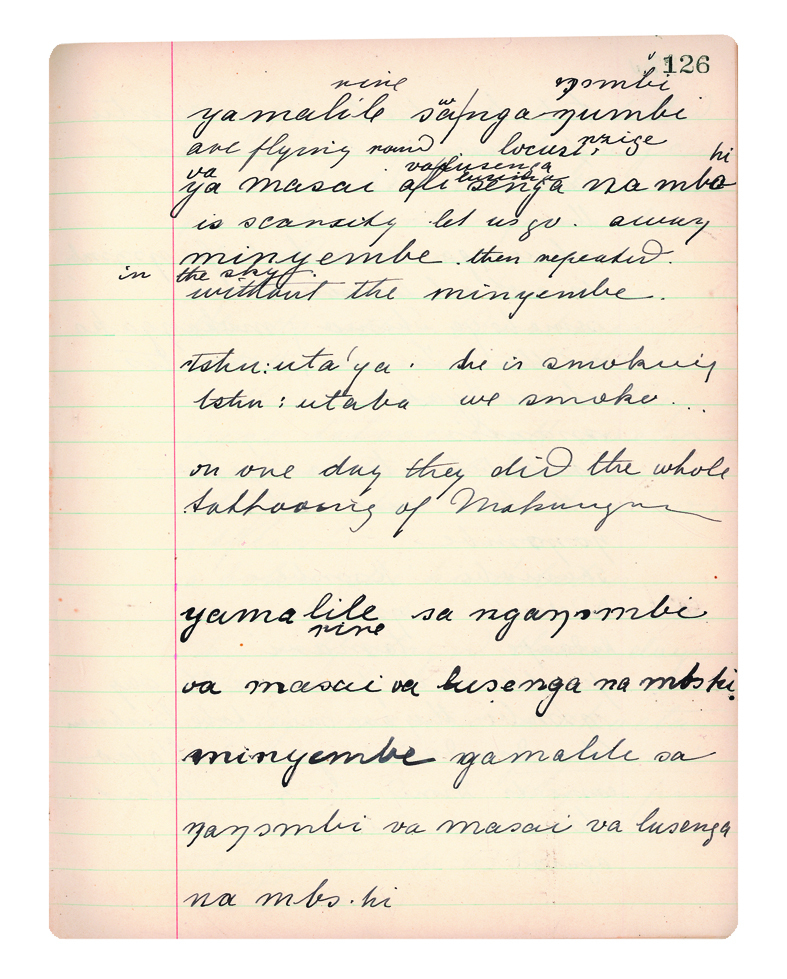 126
rine ŋɔmbi
yamalile sa/nga ŋumbi
are flying round locust nzige
va va lusenga hi
ya masai senga na mbo
is scarsity let us go. away
minyembe. then repeated.
in the sky.
without the minyembe.
tshu:uta'ya. he is smoking
tshu:utaba we smoke...
on one day they did the whole
tathooing of Makungu
yamalile sa ngaŋɔmbi
rine
va masai va lusenga na mbɔhi
minyembe yamalile sa
ŋaŋɔmbi va masai va lusenga
na mbɔ.hi